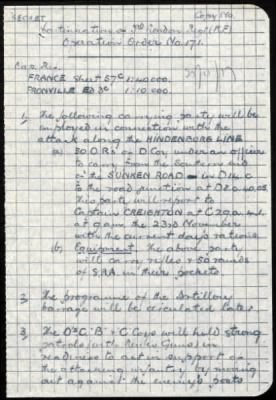 SECRET Copy No.
Continuation of 3rd London Regt (R.F.)
Operation Order No 171.
Map Ref.
FRANCE Sheet 57C 1:40000.
PRONVILLE Ed 3C 1:10.000.
1. The following carrying party will be
employed in connection with the
attack along the HINDENBURG LINE
a) 80 O.Rs of D Coy under an officer
to carry from the Southern end
of the SUNKEN ROAD in D
to the road junction at
This party will report to
Captain CREIGHTON at C29a
at 9 am the 23rd November
with the current day's rations.
(b) Equipment. The above party
will carry rifles & 50 rounds
of SAA in their pockets
2. The programme of the Artillery
barrage will be circulated later.
3. The OsC 'B' & C Coys will hold strong
patrols (with Lewis Guns) in
readiness to act in support of
the attacking infantry by moving
out against the enemy's posts